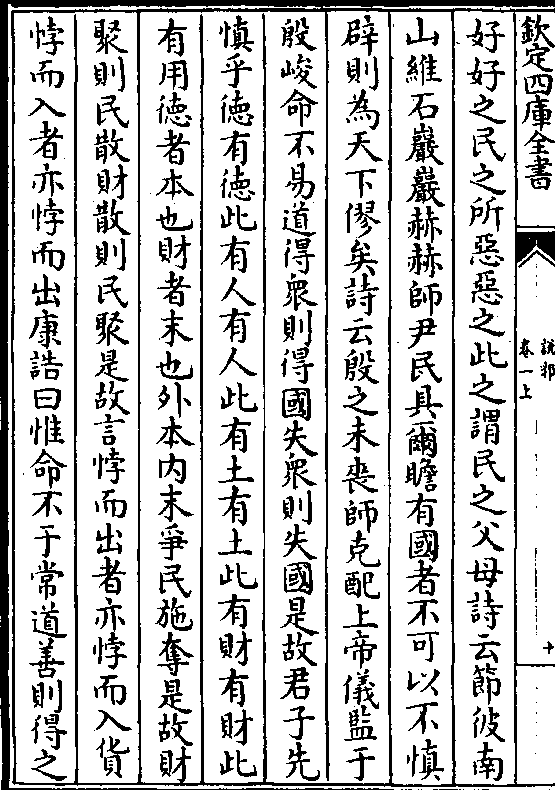 欽定四庫全書
說郛
卷一上
十
好好之民之所惡惡之此之謂民之父母詩云節彼南
山維石巖巖赫赫師尹民具爾瞻有國者不可以不慎
辟則為天下僇矣詩云殷之未喪師克配上帝儀監于
殷峻命不易道得衆則得國失衆則失國是故君子先
慎乎徳有徳此有人有人此有土有土此有財有財此
有用徳者本也財者末也外本内末爭民施奪是故財
聚則民散財散則民聚是故言悖而出者亦悖而入貨
悖而入者亦悖而出康誥曰惟命不于常道善則得之